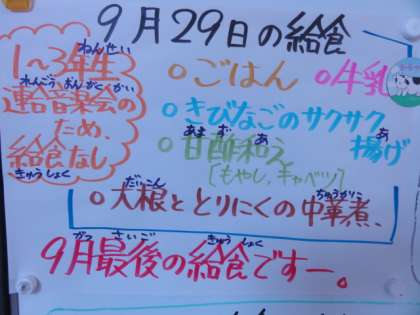 9月29日の給食
1〜3年生
ねんせい
連合音楽会の
れんごうおんがくかい
ため、
給食なし
きゅうしょく
○ごはん
○牛乳
○きびなごのサクサク
揚げ
あ
○甘酢和え
あまずあ
[もやし、キャベツ]
○大根ととりにくの中華煮
だいこん
ちゅうかに
9月最後の給食ですー。
がつ さいご きゅうしょく